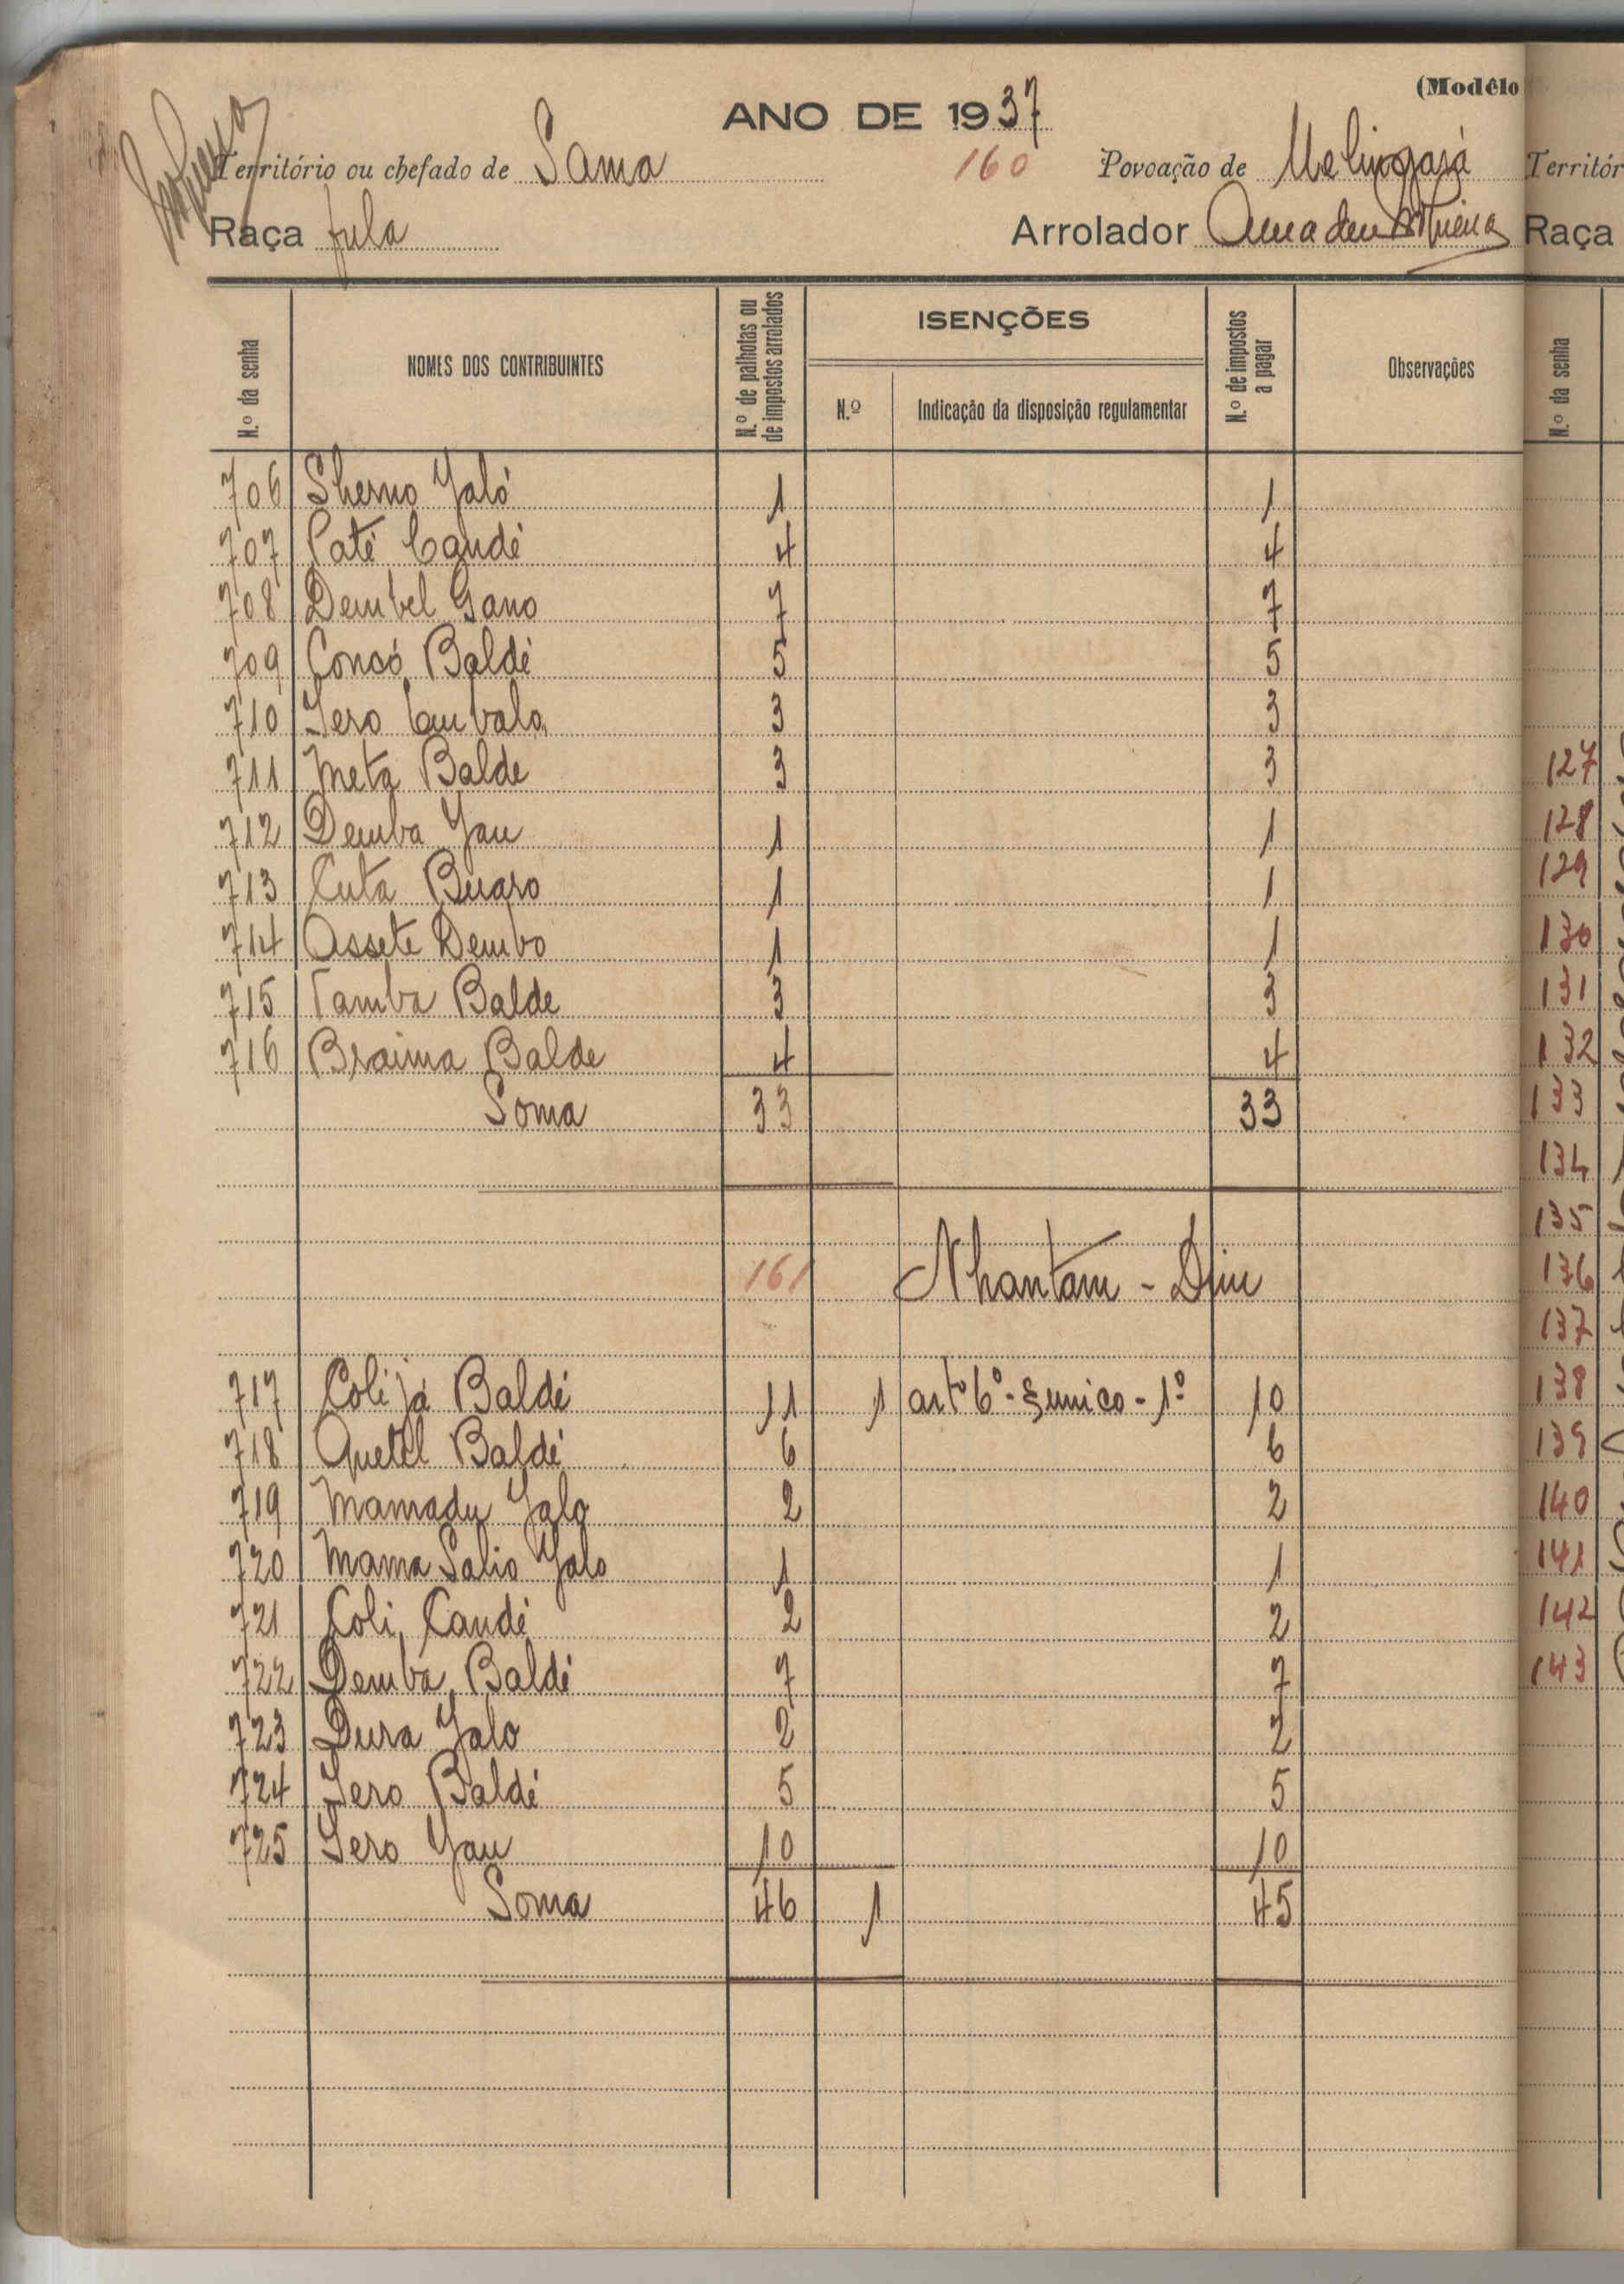 (Modêlo
ANO DE 1937
Território ou chefado de Sama 160 Povoação de
Raça fula Arrolador Amadeu
N.º da senha NOMES DOS CONTRIBUINTES N.º de palhotas ou de impostos arrolados ISENÇÕES N.º Indicação da disposição regulamentar N.º de impostos a pagar Observações
706 Sherno Jaló 1 1
707 Paté Candé 4 4
708 Dembel Gano 7 7
709 Concó Baldé 5 5
710 Iero Embalo 3 3
711 Meta Balde 3 3
712 Demba Jau 1 1
713 Cuta Buaro 1 1
714 Assete Dembo 1 1
715 Tamba Balde 3 3
716 Braima Balde 4 4
Soma 33 33
161 Nhantam - Djin
717 Colijá Baldé 11 1 artº 6º - § unico - 1º 10
718 Quetel Baldé 6 6
719 Mamadu Jalo 2 2
720 Mama Salio Jalo 1 1
721 Coli Candé 2 2
722 Demba Baldé 7 7
723 Dura Jalo 2 2
724 Iero Baldé 5 5
725 Iero Jau 10 10
Soma 46 1 45
Territór
Raça
N.º da senha
127
128
129
130
131
132
133
134
135
136
137
138
139
140
141
142
143